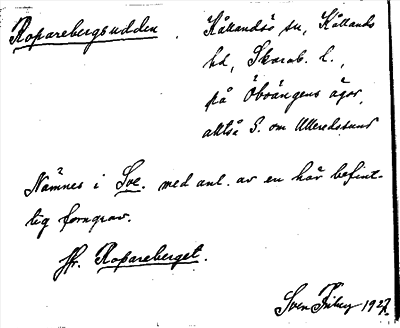 Roparebergsudden. Kållandsö sn, Kållands
hd, Skarab. l.,
på Öboängens ägor,
alltså S. om Ulleredssund
Nämnes i Sve. med anl. av en här befint-
lig forngrav.
Jfr. Ropareberget.
Sven 1927.